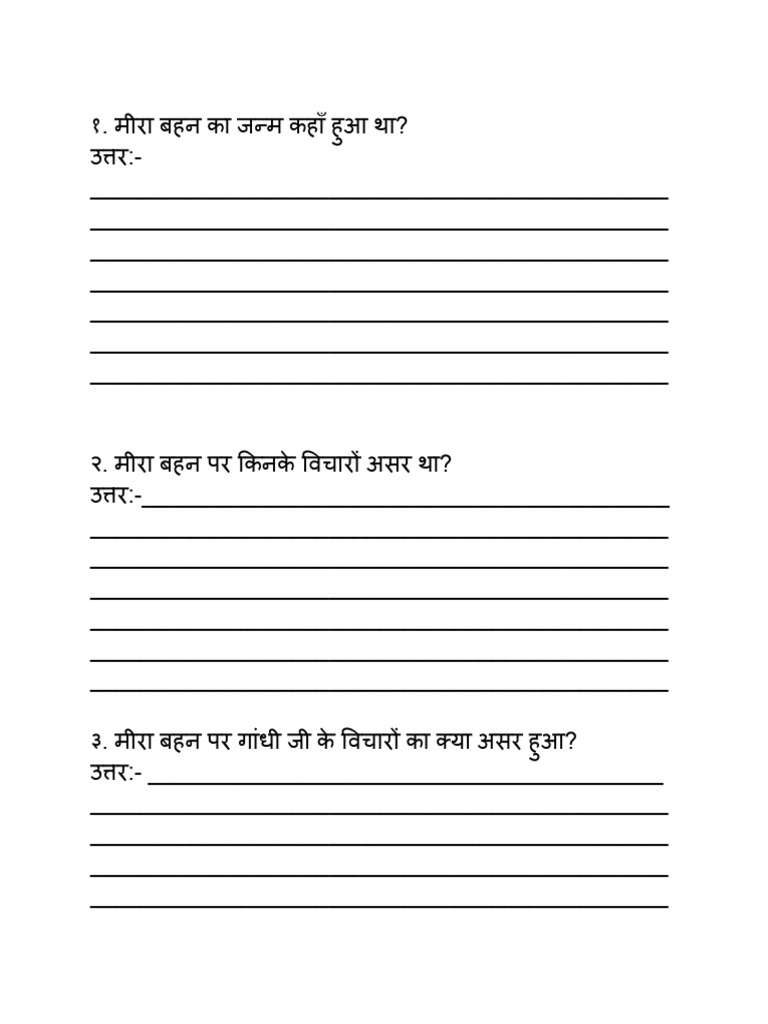 १. मीरा बहन का जन्म कहाँ हुआ था?
उत्तर:-
२. मीरा बहन पर किनके विचारों असर था?
उत्तर:-
३. मीरा बहन पर गांधी जी के विचारों का क्या असर हुआ?
उत्तर:-